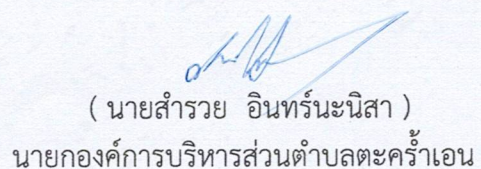 ( นายสำรวย อินทร์นะนิสา )
นายกองค์การบริหารส่วนตำบลตะคร้ำเอน